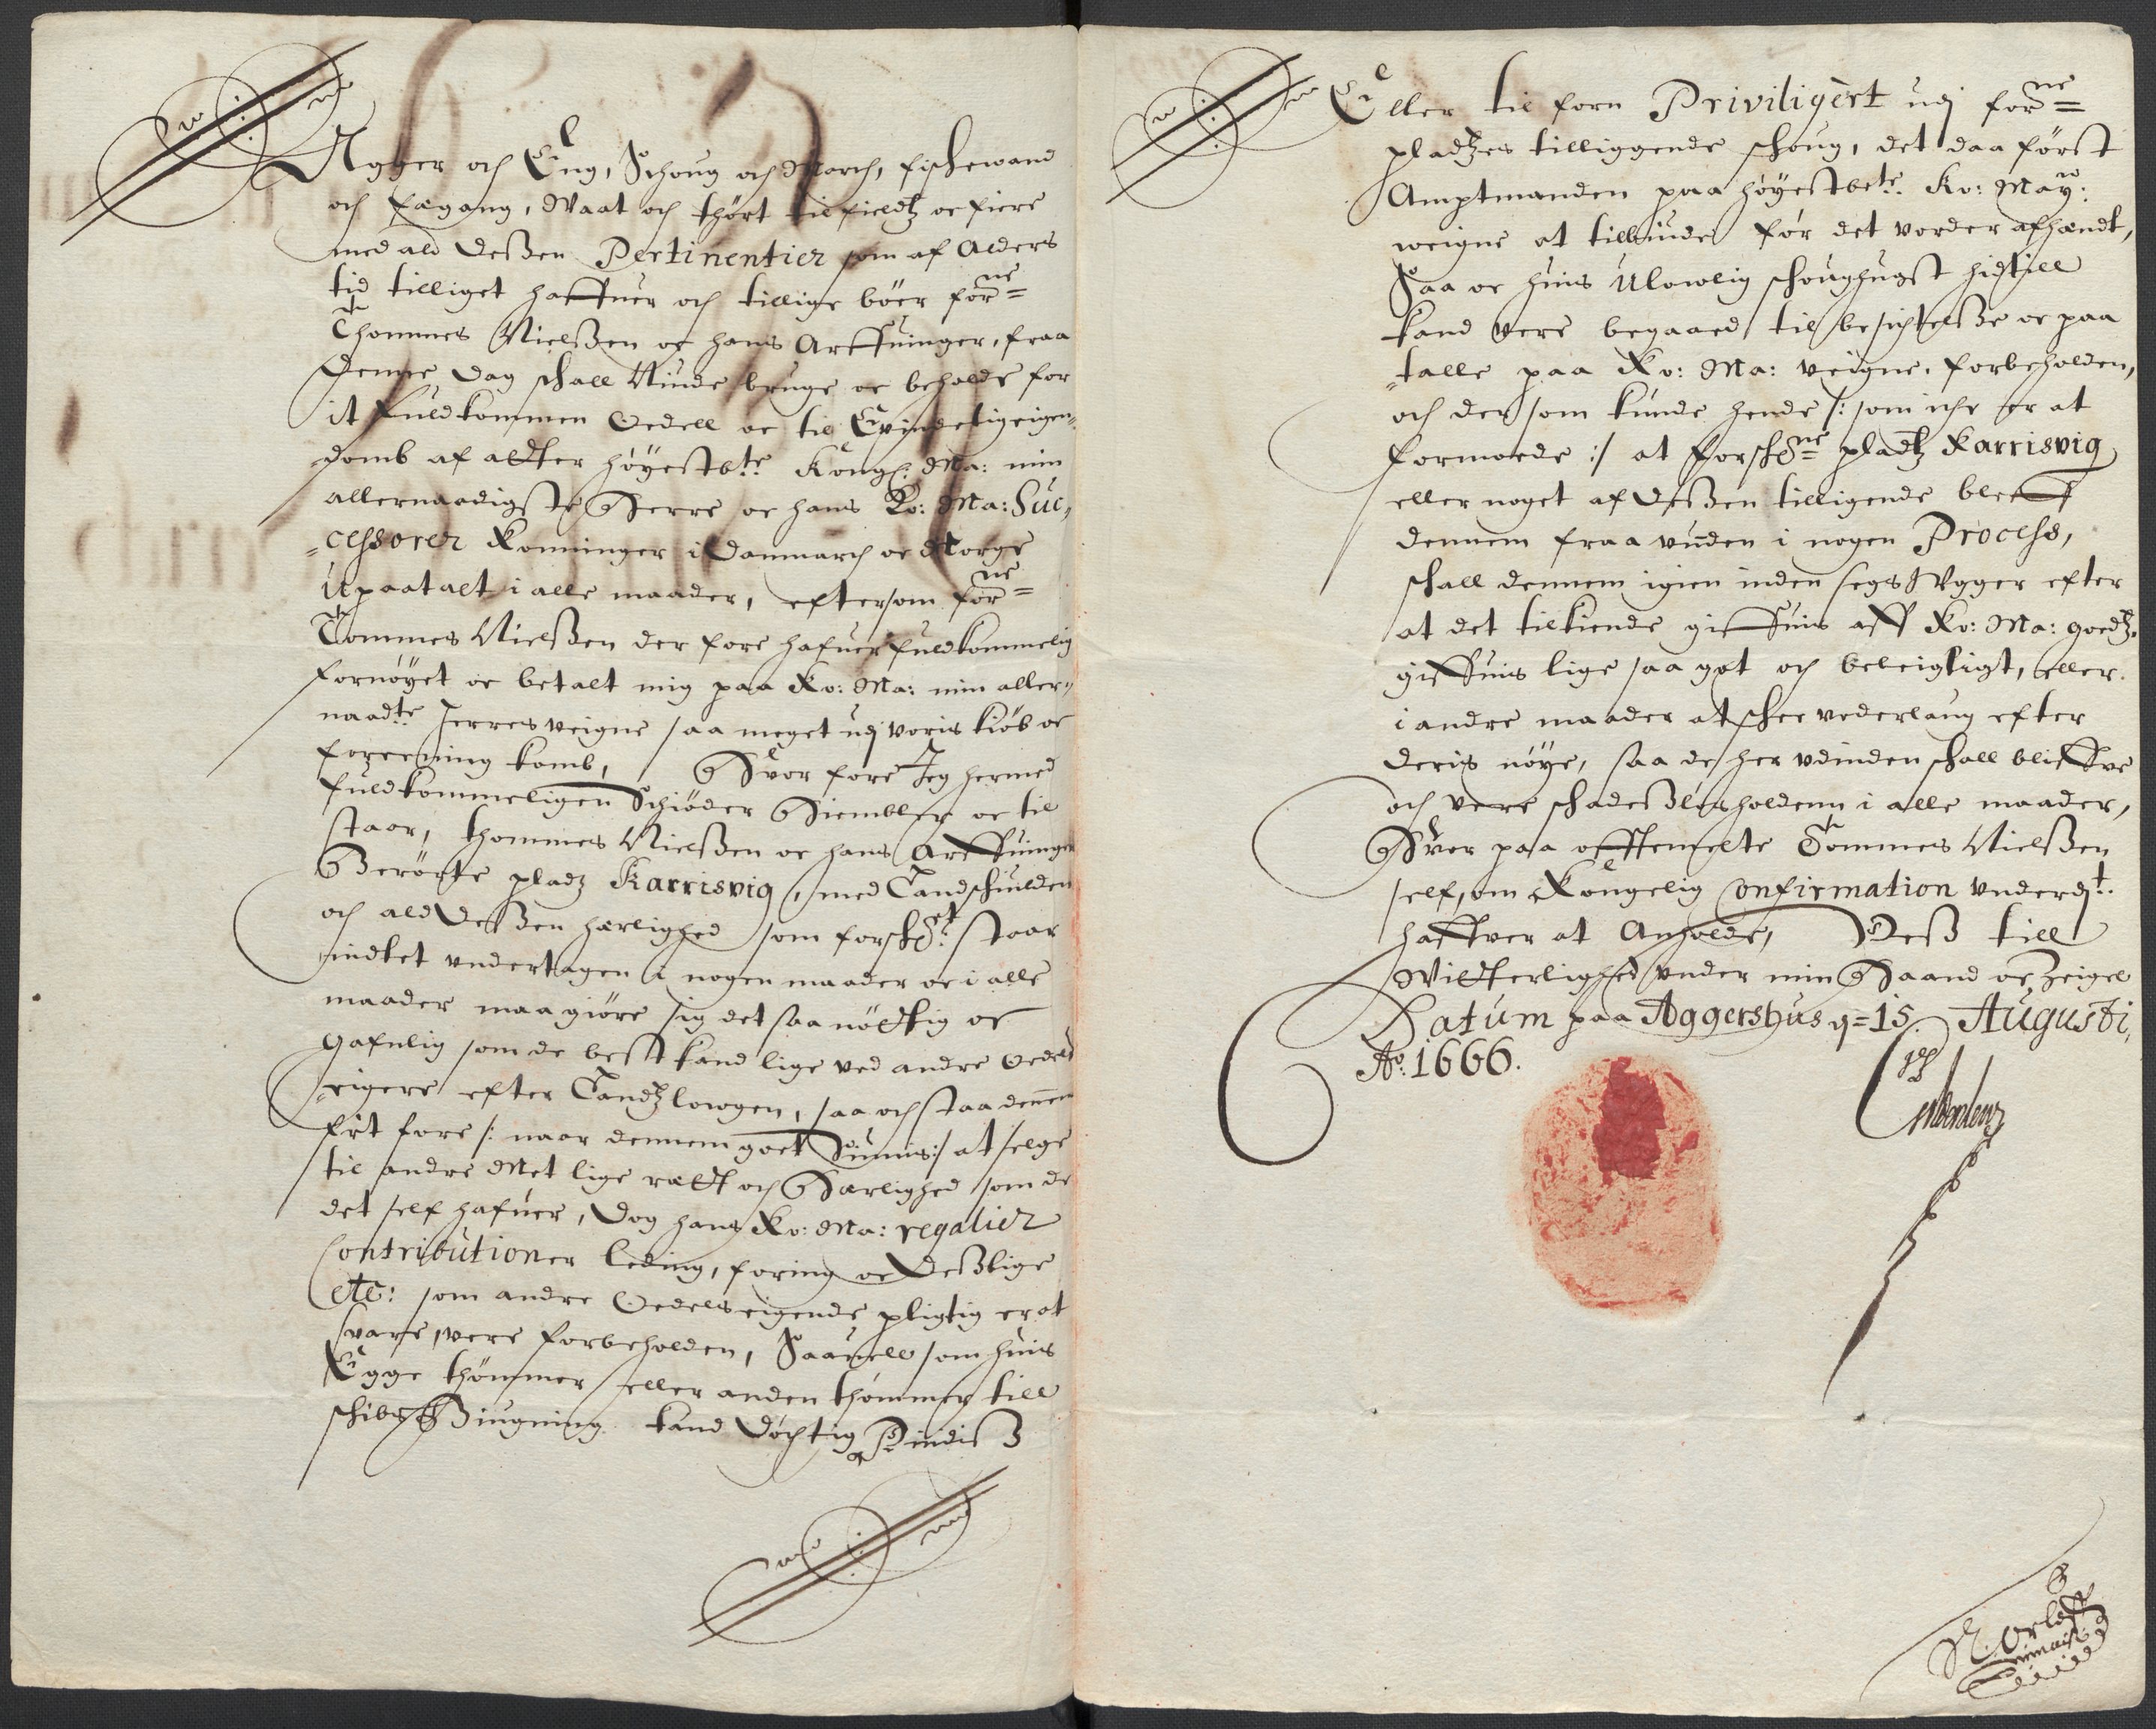 Agger och Eng, Schoug och March, fischewand
och fægang, Waat och thørt til fieldtz oc fiere
med ald deßen Pertinentier som af Alders
tid tilliget haffuer och tillige bøer forne=
Thommes Nielßen oc hans Arffuinger, fraa
denne dag schall Niude bruge oc beholde for
it fuldkommen Oedell oc til Evindelig eigen=
domb af aldter høyestbte. Kongl: Ma: min
allernaadigste Herre oc hans Ko: Ma: Suc,
=cessorer Konninger i Danmarch oc Norge
Upaatalt i alle maader, eftersom forne=
Tommes Nielßen der fore hafuer fuldkommelig
fornøyet oc betalt mig paa Ko: Ma: min aller=
naadte Herres veigne saa meget udj voris kiøb oc
foreening komb, Hvor fore Jeg hermed
fuldkommeligen Schiøder Hiembler oc til
staar, thommes Nielßen oc hans Arffuinger
Berørte pladz Karrisvig, med Landschulden
och ald deßen herlighed som forschet. staar
indtet undertagen i nogen maader oc i alle
maader maa giøre sig det saa nøttig oc
gafnlig som de best kand lige ved andre Oedels
eigere efter Landtz lowgen, saa och staa dennem
frit fore /: naar dennem got Siunis :/ at selge
til andre Met lige rætt och Herlighed som de
det self hafuer, Dog hans Ko: Ma: regalier
Contributioner leding, foring oc deßlige
etc: som andre Oedels eigende pligtig er at
svare, vere forbeholden, Saauell som huis
Egge thømmer eller anden thømmer till
schibs Biugning kand døchtig Findis
Eller til forn Priviligert udj forne=
pladtzes tilliggende schoug, det daa først
Amptmanden paa høyestbete. Ko: May:
weigne at tilbiude før det vorder afhændt,
Saa oc huis Ulowlig schoughugst hidtill
kand vere begaaed til besichtelße oc paa
=talle paa Ko: Ma: veigne, forbeholden,
och der som kunde hende /: som iche er at
formoede :/ at forschne= pladtz Karrisvig
eller noget af deßen tilligende bleff
dennem fraa vunden i nogen Process,
schall dennem igien inden sex Wgger efter
at det tilkiende giffuis aff Ko: Ma: goedtz
giffuis lige saa got och beleigligt, eller
i andre maader at schee vederlaug efter
deris nøye, saa de her udinden schall bliffve
och vere schadeßløs holdenn i alle maader,
Hvor paa offtemelte Tommes Nielßen
self, om Kongelig Confirmation underdt.
haffver at Anholde, Deß till
Vitterlighed under min Haand oc Zeigel
Datum paa Aggershus d=15. Augusti,
Ao: 1666.